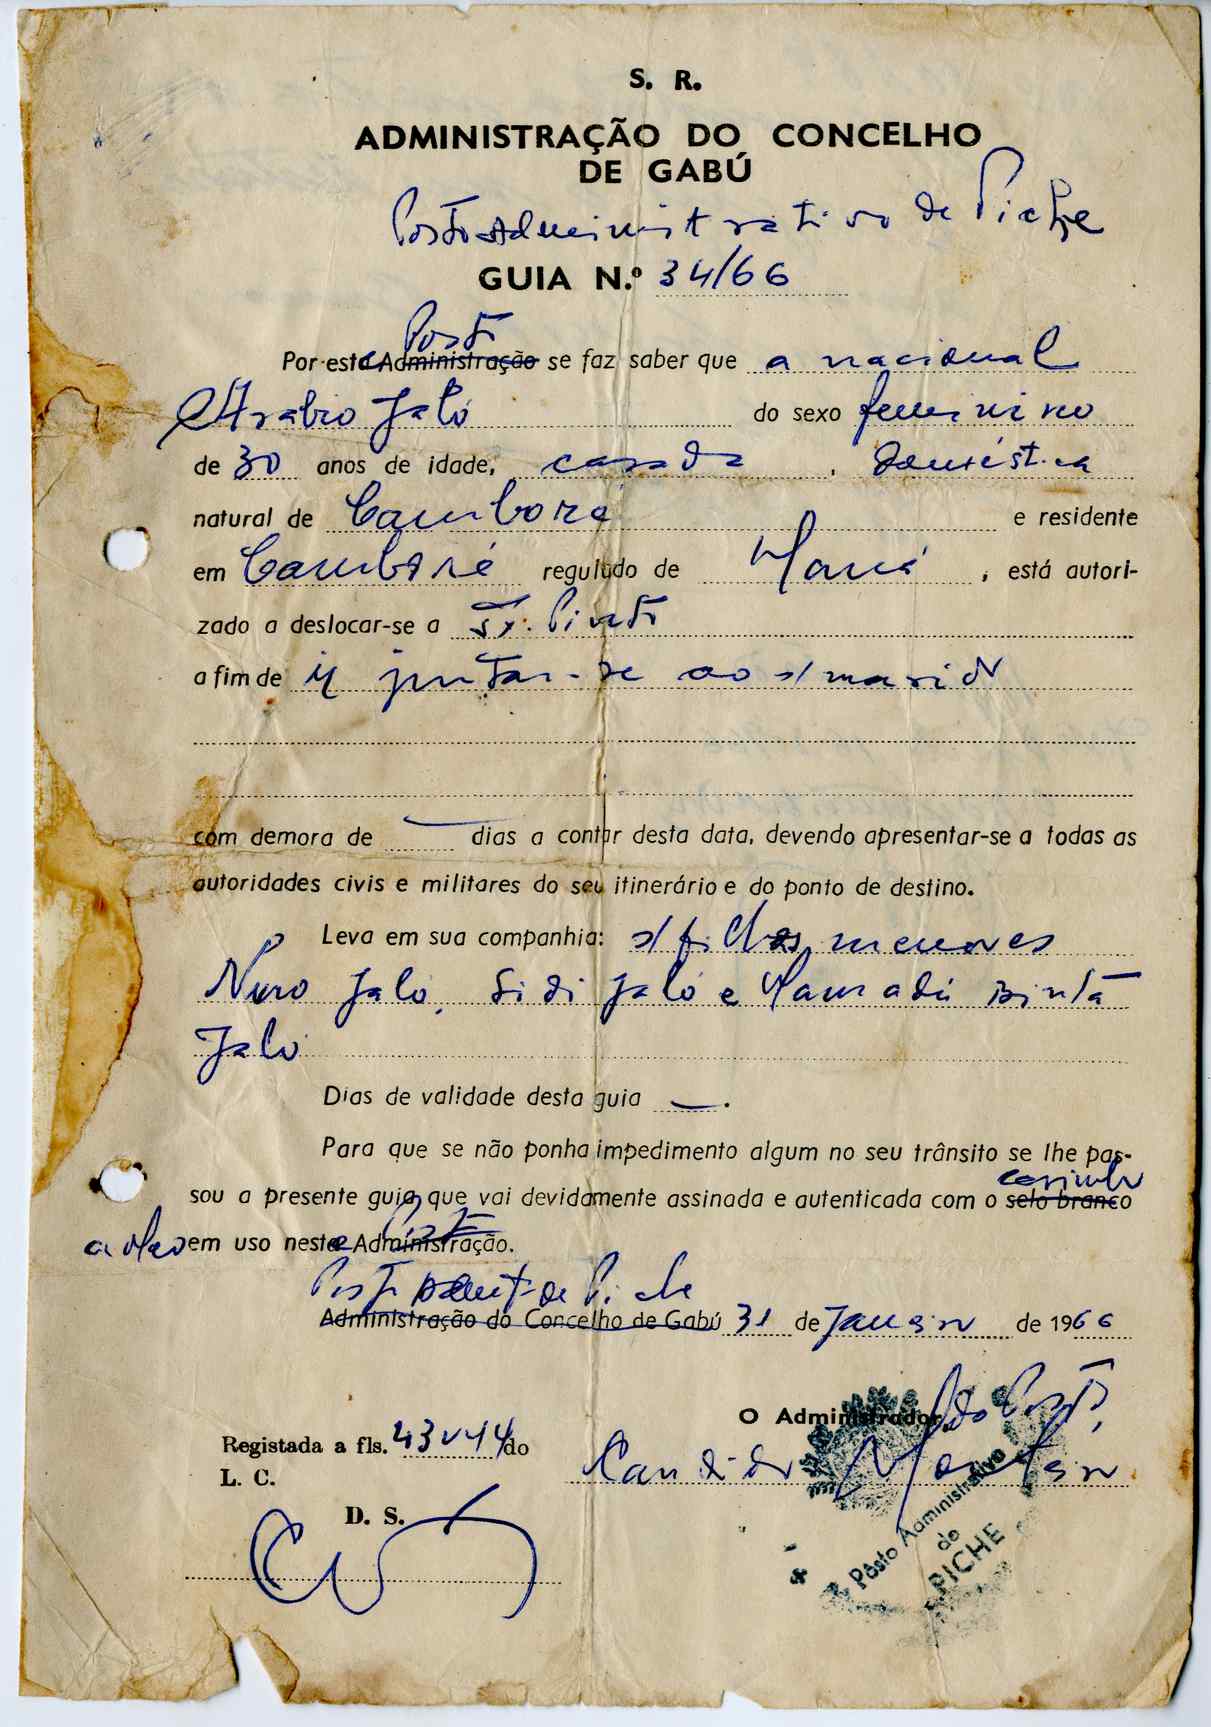 S. R.
ADMINISTRAÇÃO DO CONCELHO
DE GABÚ
Posto Administrativo de Piche
GUIA N.º 34/66
Posto
Por este Administração se faz saber que a nacional
Jaló do sexo feminino
de 30 anos de idade, casada, doméstica
natural de Camboré e residente
em Camboré regulado de Maná, está autori-
zado a deslocar-se a
a fim de ir juntar-se ao s/ marido
com demora de — dias a contar desta data, devendo apresentar-se a todas as
autoridades civis e militares do seu itinerário e do ponto de destino.
Leva em sua companhia: s/ filhos menores
Nuro Jaló, Sidi Jaló e Mamadú Bintã
Jaló
Dias de validade desta guia —.
Para que se não ponha impedimento algum no seu trânsito se lhe pas-
carimbo
sou a presente guia, que vai devidamente assinada e autenticada com o selo branco
a óleo em uso neste Administração.
Posto
Posto Admt. de Piche
Administração do Concelho de Gabú 31 de Janeiro de 1966
O Administrador do Posto,
Registada a fls. 43V44 do
Candido
L. C.
D. S.
Pôsto Administrativo
de
PICHE